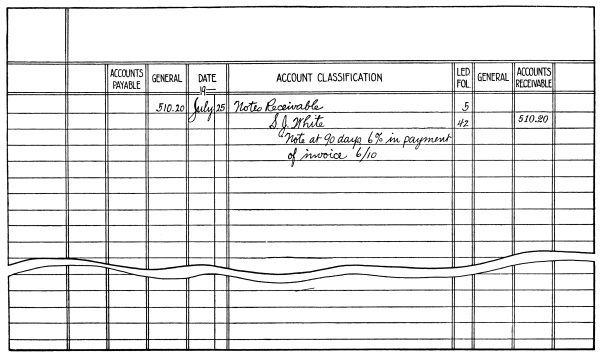 ACCOUNTS PAYABLE GENERAL DATE 19— ACCOUNT CLASSIFICATION LED FOL. GENERAL ACCOUNTS RECEIVABLE
510.20 July 25 Notes Receivable 5
S. J. White 42 510.20
Note at 90 days 6% in payment
of invoice 6/10